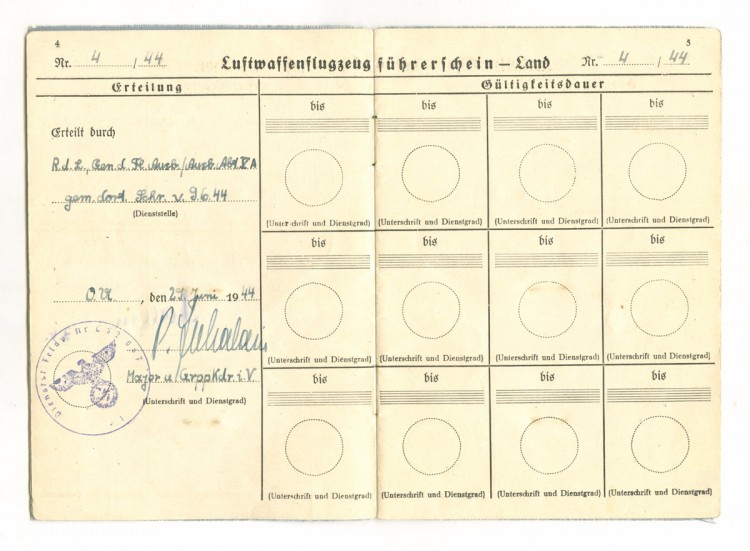 4
Nr. 4 / 44
Luftwaffenflugzeugführerschein – Land
Nr. 4 / 44
5
Erteilung
Gültigkeitsdauer
Erteilt durch
R.d.L., Gen.d.Fl.Ausb./Ausb.Abt.
gem. dort. Schr. v. 9.6.44
(Dienststelle)
O.U., den 29. Juni 1944
Major u. GrppKdr. i.V.
(Unterschrift und Dienstgrad)
Dienstst. Feldp. Nr.
bis
bis
bis
bis
(Unterschrift und Dienstgrad)
(Unterschrift und Dienstgrad)
(Unterschrift und Dienstgrad)
(Unterschrift und Dienstgrad)
bis
bis
bis
bis
(Unterschrift und Dienstgrad)
(Unterschrift und Dienstgrad)
(Unterschrift und Dienstgrad)
(Unterschrift und Dienstgrad)
bis
bis
bis
bis
(Unterschrift und Dienstgrad)
(Unterschrift und Dienstgrad)
(Unterschrift und Dienstgrad)
(Unterschrift und Dienstgrad)